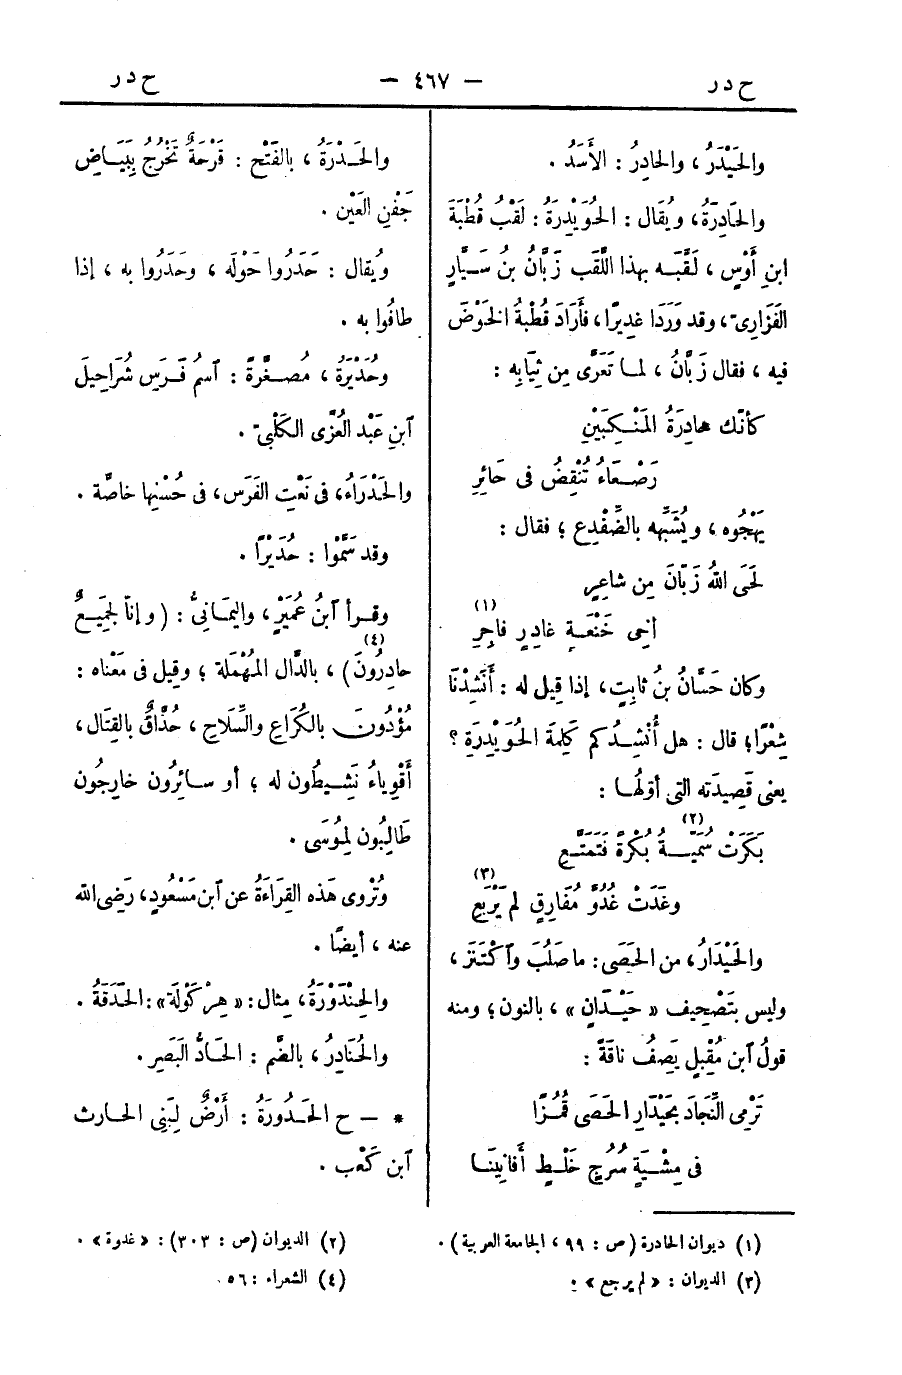 ح در
— ٤٦٧ —
ح در
والحَيْدَرُ ، والحادِرُ : الأَسَدُ .
والحَادِرَةُ ، ويُقَال : الحُوَيْدِرَةُ : لَقَبُ قُطْبَةَ
ابنِ أَوْسٍ ، لَقَّبَه بهذا اللَّقَب زَبَّانُ بنُ سَيَّارٍ
الفَزَارِىّ ، وقد وَرَدَا غديرًا ، فأَرَادَ قُطْبةُ الخَوْضَ
فيه ، فقال زَبَّانُ ، لما تَعَرَّى مِن ثِيَابِه :
كأنّك حادِرَةُ المَنْكِبَيْنِ
رَصْعَاءُ تُنْقِضُ فى حَائِرِ
يَهْجُوه ، ويُشَبِّهه بالضِّفْدِع ؛ فقال :
لَحَى اللهُ زَبّانَ مِن شاعِرٍ
أخِى خَنْعَةٍ غادِرٍ فاجِرِ (١)
وكان حَسَّانُ بنُ ثابِتٍ ، إذا قِيل له : أَنْشِدْنَا
شِعْرًا ؛ قال : هل أُنْشِدُكم كَلِمَةَ الحُوَيْدِرَةِ ؟
يعنى قَصِيدَته التى أوّلُها :
بَكَرَتْ سُمَيَّةُ بُكْرَةً (٢) فَتَمَتَّعِ
وغَدَتْ غُدُوَّ مُفَارِقٍ لم يَرْبَعِ (٣)
والحَيْدَارُ ، من الحَصَى : ما صَلُبَ وٱكْتَنَزَ ،
وليس بتَصْحِيف « حَيْدَانٍ » ، بالنون ؛ ومنه
قولُ ٱبن مُقْبِلٍ يَصِفُ ناقَةً :
تَرْمِى النِّجَادَ بحَيْدَارِ الحَصَى قُمَزًا
فى مِشْيَةٍ سُرُحٍ خَلْطٍ أَفانِينَا
والحَدْرَةُ ، بالفَتْح : قَرْحَةٌ تَخْرُجُ بِبَيَاضِ
جَفْنِ العَيْن .
ويُقال : حَدَرُوا حَوْلَه ، وحَدَرُوا به ، إذا
طافُوا به .
وحُدَيْرَةُ ، مُصَغَّرَةً : ٱسمُ فَرَسِ شُرَاحِيلَ
ٱبنِ عَبْد العُزَّى الكَلْبِىّ .
والحَدْرَاءُ ، فى نَعْتِ الفَرَس ، فى حُسْنِها خاصَّة .
وقد سَمَّوْا : حُدَيْرًا .
وقرأ ٱبنُ عُمَيْرٍ ، واليمَانِىُّ : (وإناّ لجَمِيعٌ
حادِرُونَ) (٤) ، بالدَّال المُهْمَلة ؛ وقيل فى مَعْناه :
مُؤْدُونَ بالكُرَاعِ والسِّلَاحِ ، حُذَّاقٌ بالقِتَال ،
أَقْوِياءُ نَشِيطُون له ؛ أو سائِرُون خارجُون
طَالِبُون لِمُوسَى .
وتُرْوى هَذه القِرَاءَةُ عن ٱبن مَسْعُودٍ ، رَضِى الله
عنه ، أيضًا .
والحِنْدَوْرَةُ ، مثال : « هِرْكَوْلَة » : الحَدَقَةُ .
والحُنَادِرُ ، بالضّم : الحَادُّ البَصَرِ .
* — ح الحَدُورَةُ : أَرْضٌ لِبَنِى الحارث
ٱبن كَعْب .
(١) ديوان الحادرة (ص : ٩٩ ، الجامعة العربية) .
(٢) الديوان (ص : ٣٠٣) : « غدوة » .
(٣) الديوان : « لم يرجع » .
(٤) الشعراء : ٥٦ .